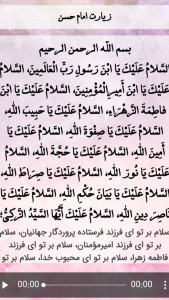 زیارت امام حسن
بسم الله الرحمن الرحیم
السَّلامُ عَلَيْكَ يَا ابْنَ رَسُولِ رَبِّ الْعَالَمِينَ، السَّلامُ
عَلَيْكَ يَا ابْنَ أَمِيرِ الْمُؤْمِنِينَ، السَّلامُ عَلَيْكَ يَا ابْنَ
فاطِمَةَ الزَّهْرَاءِ، السَّلامُ عَلَيْكَ يَا حَبِيبَ اللّٰهِ،
السَّلامُ عَلَيْكَ يَا صِفْوَةَ اللّٰهِ، السَّلامُ عَلَيْكَ يَا
أَمِينَ اللّٰهِ، السَّلامُ عَلَيْكَ يَا حُجَّةَ اللّٰهِ، السَّلامُ
عَلَيْكَ يَا نُورَ اللّٰهِ، السَّلامُ عَلَيْكَ يَا صِرَاطَ اللّٰهِ،
السَّلامُ عَلَيْكَ يَا بَيَانَ حُكْمِ اللّٰهِ، السَّلامُ عَلَيْكَ يَا
نَاصِرَ دِينِ اللّٰهِ، السَّلامُ عَلَيْكَ أَيُّهَا السَّيِّدُ الزَّكِيُّ؛
سلام بر تو ای فرزند فرستاده پروردگار جهانیان، سلام
بر تو ای فرزند امیرمؤمنان، سلام بر تو ای فرزند
فاطمه زهرا، سلام بر تو ای محبوب خدا، سلام بر تو
00:00 00:00